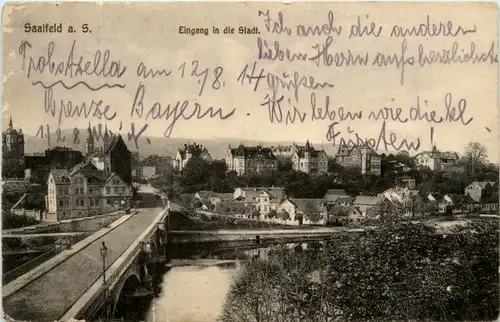 Saalfeld a. S.
Eingang in die Stadt.
Probstzella am 12/8. 14
Grenze Bayern.
Ich auch die anderen
lieben Herrn aufs herzlichste
grüßen
Wir leben wie die kl.
Fürsten!